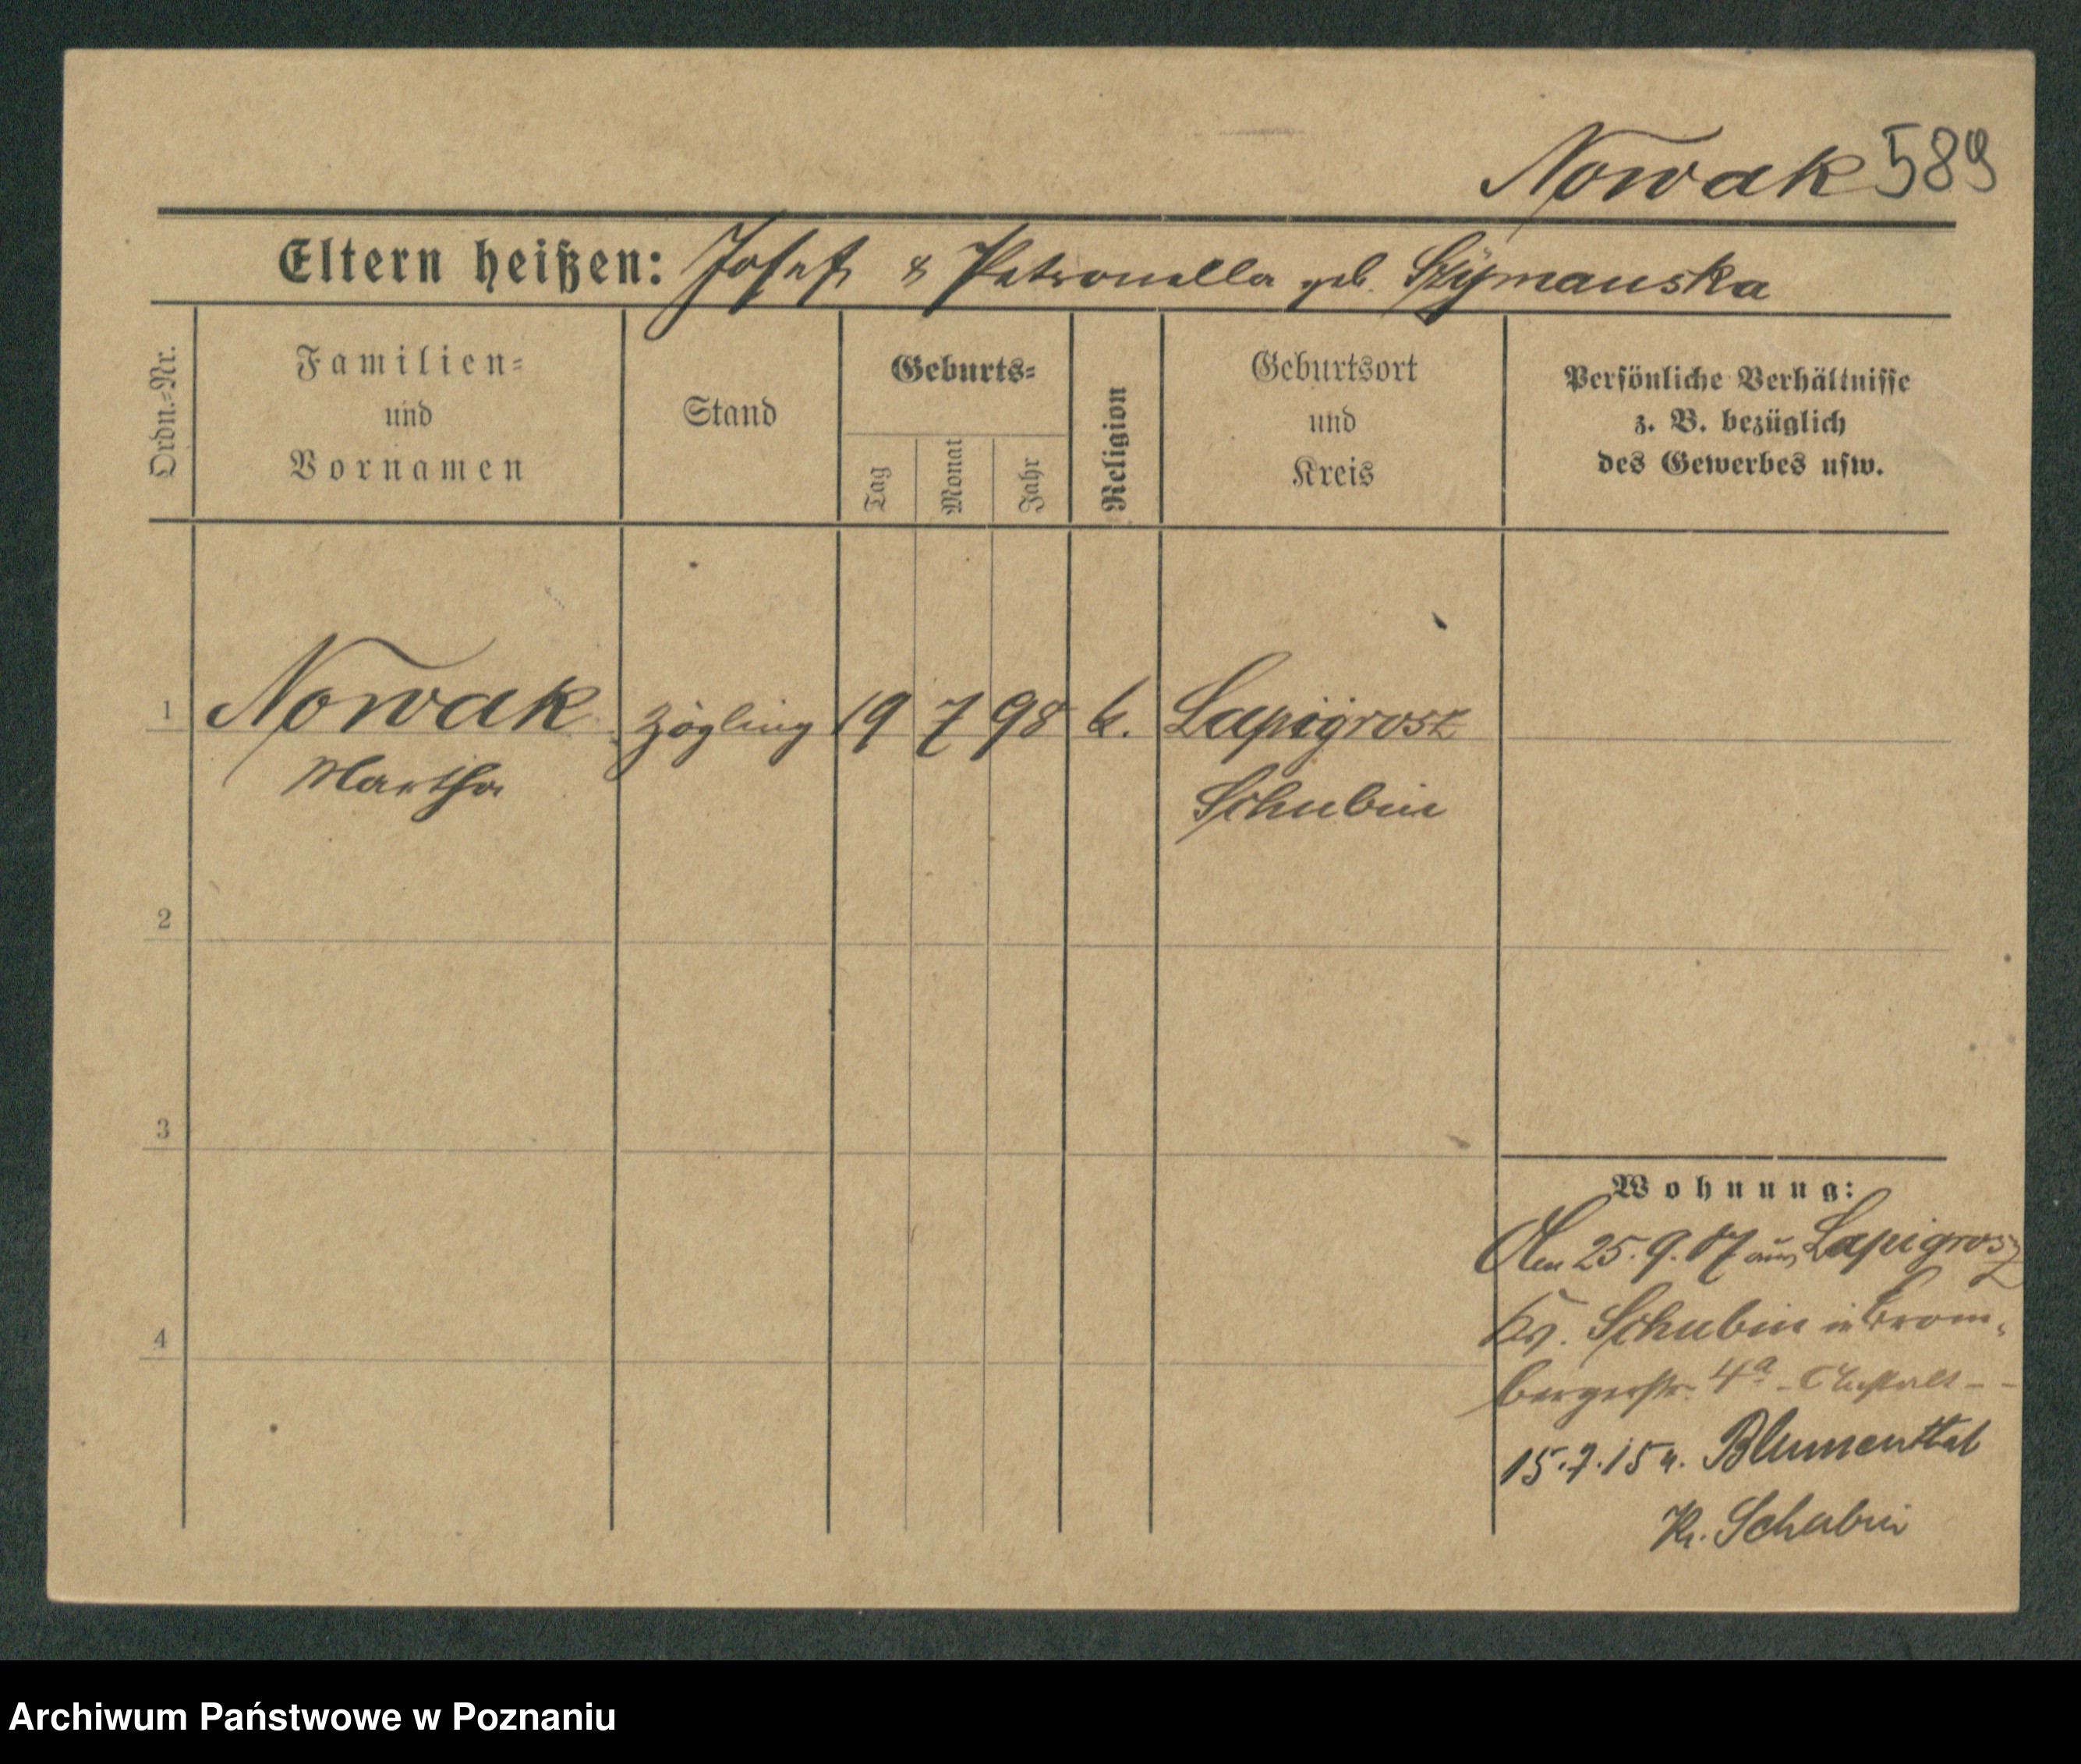 Nowak 589
Eltern heißen: Josef & Petronella geb. Szymanska
Ordn.-Nr.
Familien-
und
Vornamen
Stand
Geburts-
Tag
Monat
Jahr
Religion
Geburtsort
und
Kreis
Persönliche Verhältnisse
z. B. bezüglich
des Gewerbes usw.
1 Nowak Zögling 19 7 98 k. Lapigrosz
Martha Schubin
2
3
4
Wohnung:
Am 25.9.07 aus Lapigrosz
Kr. Schubin in Brom-
bergerstr. 4a - Anstalt -
15.7.15 n. Blumenthal
Kr. Schubin
Archiwum Państwowe w Poznaniu